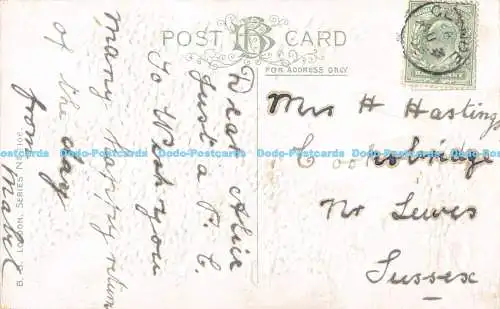 POST CARD
FOR ADDRESS ONLY
Dear Alice
Just a P. C.
to Wish you
many happy return
of the day
from
Mabel
Mrs H Hastings
Nr Lewes
Sussex
B. B. LONDON. SERIES No
Dodo-Postcards Dodo-Postcards Dodo-Postcards Dodo-Postcards
Dodo-Postcards Dodo-Postcards Dodo-Postcards Dodo-Postcards